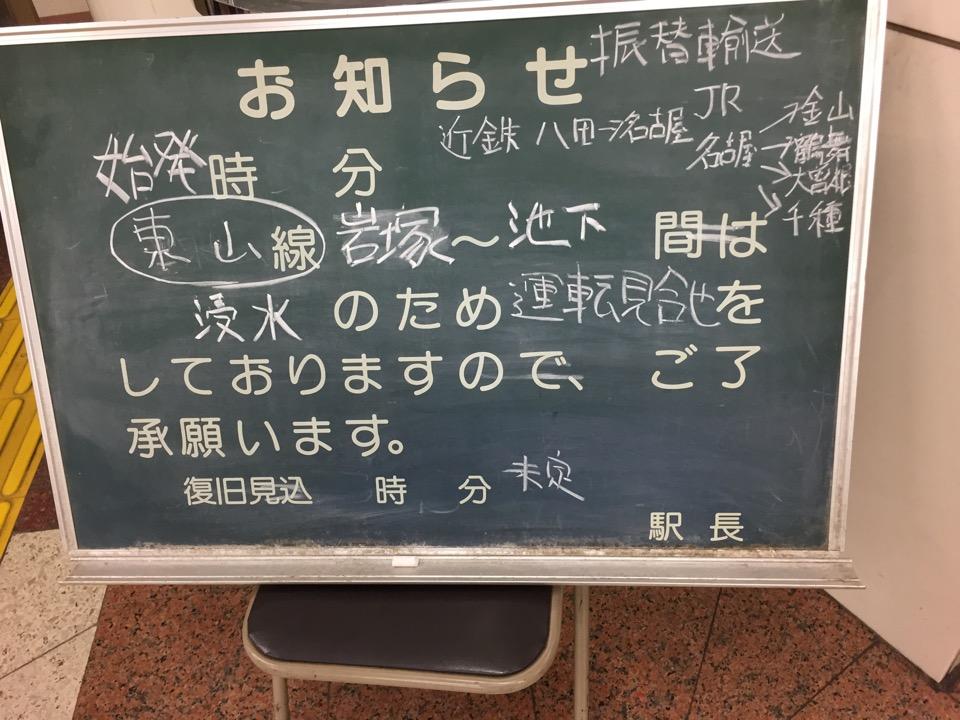 お知らせ 振替輸送
近鉄 八田→名古屋 JR 名古屋→金山
→鶴舞
→大曽根
→千種
始発時 分
東山線 岩塚～池下 間は
浸水のため運転見合せを
しておりますので、ご了
承願います。
復旧見込 時 分 未定
駅長